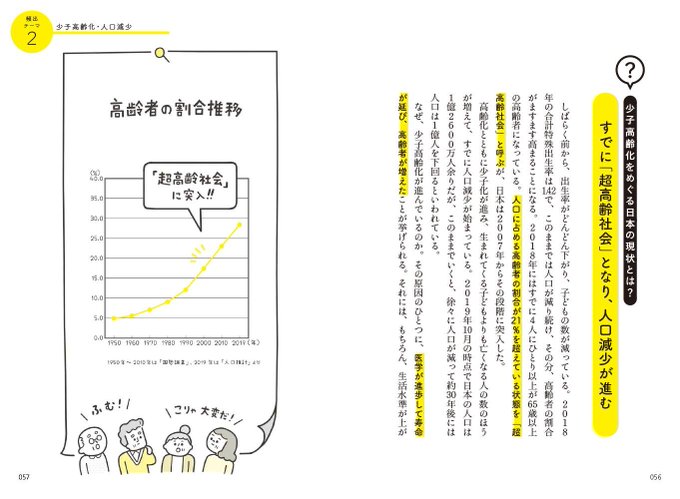 頻出
テーマ
2
少子高齢化・人口減少
?
少子高齢化をめぐる日本の現状とは?
すでに「超高齢社会」となり、人口減少が進む
しばらく前から、出生率がどんどん下がり、子どもの数が減っている。2018
年の合計特殊出生率は1.42で、このままでは人口が減り続け、その分、高齢者の割合
がますます高まることになる。2018年にはすでに4人にひとり以上が65歳以上
の高齢者になっている。人口に占める高齢者の割合が21%を超えている状態を「超
高齢社会」と呼ぶが、日本は2007年からその段階に突入した。
高齢化とともに少子化が進み、生まれてくる子どもよりも亡くなる人の数のほう
が増えて、すでに人口減少が始まっている。2019年10月の時点で日本の人口は
1億2600万人余りだが、このままでいくと、徐々に人口が減って約30年後には
人口は1億人を下回るといわれている。
なぜ、少子高齢化が進んでいるのか。その原因のひとつに、医学が進歩して寿命
が延び、高齢者が増えたことが挙げられる。それには、もちろん、生活水準が上が
056
高齢者の割合推移
「超高齢社会」
に突入!!
(%)
40.0
35.0
30.0
25.0
20.0
15.0
10.0
5.0
0.0
1950 1960 1970 1980 1990 2000 2010 2019 (年)
1950年~2010年は「国勢調査」、2019年は「人口推計」より
ふむ!
こりゃ大変だ!
057